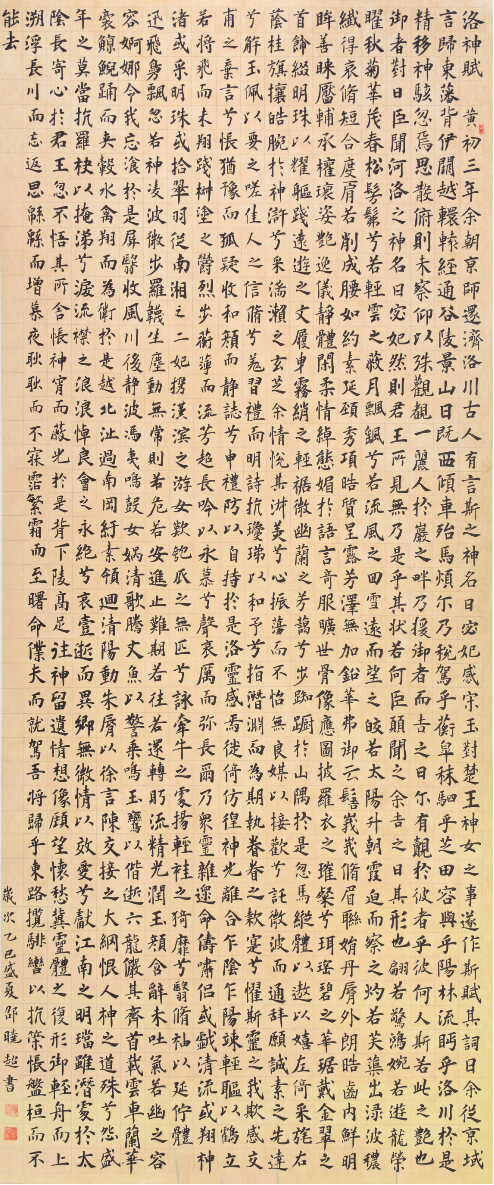 洛神賦 黃初三年余朝京師還濟洛川古人有言斯之神名曰宓妃感宋玉對楚王神女之事遂作斯賦其詞曰余從京域
言歸東藩背伊闕越轘轅經通谷陵景山日既西傾車殆馬煩尓乃稅駕乎蘅皋秣駟乎芝田容與乎陽林流眄乎洛川於是
精移神駭忽焉思散俯則未察仰以殊觀覩一麗人於巖之畔乃援御者而告之曰尓有覿於彼者乎彼何人斯若此之艷也
御者對曰臣聞河洛之神名曰宓妃然則君王所見無乃是乎其狀若何臣願聞之余告之曰其形也翩若驚鴻婉若遊龍榮
曜秋菊華茂春松髣髴兮若輕雲之蔽月飄颻兮若流風之回雪遠而望之皎若太陽升朝霞迫而察之灼若芙蕖出淥波穠
纖得衷脩短合度肩若削成腰如約素延頸秀項皓質呈露芳澤無加鉛華弗御雲髻峩峩脩眉聯娟丹脣外朗皓齒內鮮明
眸善睞靨輔承權瓌姿艷逸儀靜體閑柔情綽態媚於語言奇服曠世骨像應圖披羅衣之璀粲兮珥瑤碧之華琚戴金翠之
首飾綴明珠以耀軀踐遠遊之文履曳霧綃之輕裾微幽蘭之芳藹兮步踟躕於山隅於是忽焉縱體以遨以嬉左倚采旄右
蔭桂旗攘皓腕於神滸兮采湍瀨之玄芝余情悅其淑美兮心振蕩而不怡無良媒以接歡兮託微波而通辭願誠素之先達
兮解玉佩以要之嗟佳人之信脩兮羌習禮而明詩抗瓊珶以和予兮指潛淵而為期執眷眷之款實兮懼斯靈之我欺感交
甫之棄言兮悵猶豫而狐疑收和顏而靜誌兮申禮防以自持於是洛靈感焉徙倚仿徨神光離合乍陰乍陽竦輕軀以鶴立
若將飛而未翔踐椒塗之鬱烈步蘅薄而流芳超長吟以永慕兮聲哀厲而彌長爾乃眾靈雜遝命儔嘯侶或戲清流或翔神
渚或采明珠或拾翠羽從南湘之二妃攜漢濱之游女歎匏瓜之無匹兮詠牽牛之處揚輕袿之猗靡兮翳脩袖以延佇體
迅飛鳧飄忽若神凌波微步羅韤生塵動無常則若危若安進止難期若往若還轉眄流精光潤玉顏含辭未吐氣若幽之容
容婀娜令我忘湌於是屏翳收風川後靜波馮夷鳴鼓女媧清歌騰文魚以警乘鳴玉鸞以偕逝六龍儼其齊首載雲車蘭華
豪鯨鯢踊而夾轂水禽翔而為衛於是越北沚過南岡紆素領迴清陽動朱脣以徐言陳交接之大綱恨人神之道殊兮怨盛
年之莫當抗羅袂以掩涕兮淚流襟之浪浪悼良會之永絕兮哀壹逝而異鄉無微情以效愛兮獻江南之明璫雖潛處於太
陰長寄心於君王忽不悟其所舍悵神宵而蔽光於是背下陵高足往神留遺情想像顧望懷愁冀靈體之復形御輕舟而上
溯浮長川而忘返思綿綿而增慕夜耿耿而不寐霑繁霜而至曙命僕夫而就駕吾將歸乎東路攬騑轡以抗策悵盤桓而不
能去
歲次乙巳盛夏邵曉超書